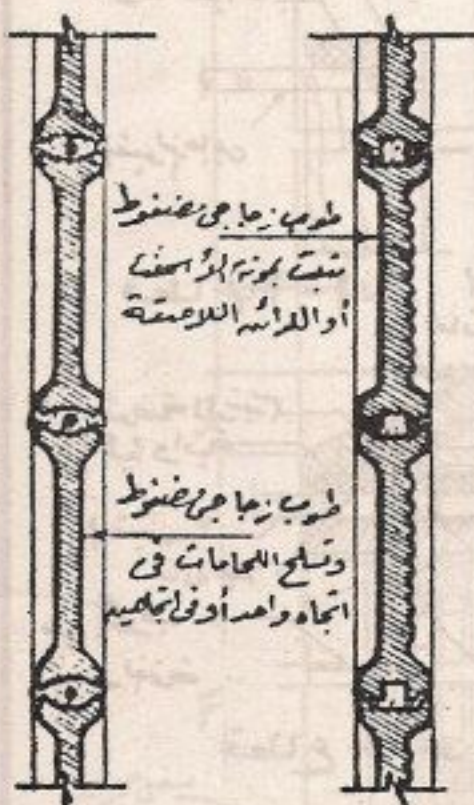 طوب زجاجى مضغوط
تثبت بمونة الأسمنت
أو اللدائن اللاصقة
طوب زجاجى مضغوط
وتسلح اللحامات فى
اتجاه واحد أو فى اتجاهين
قطاع